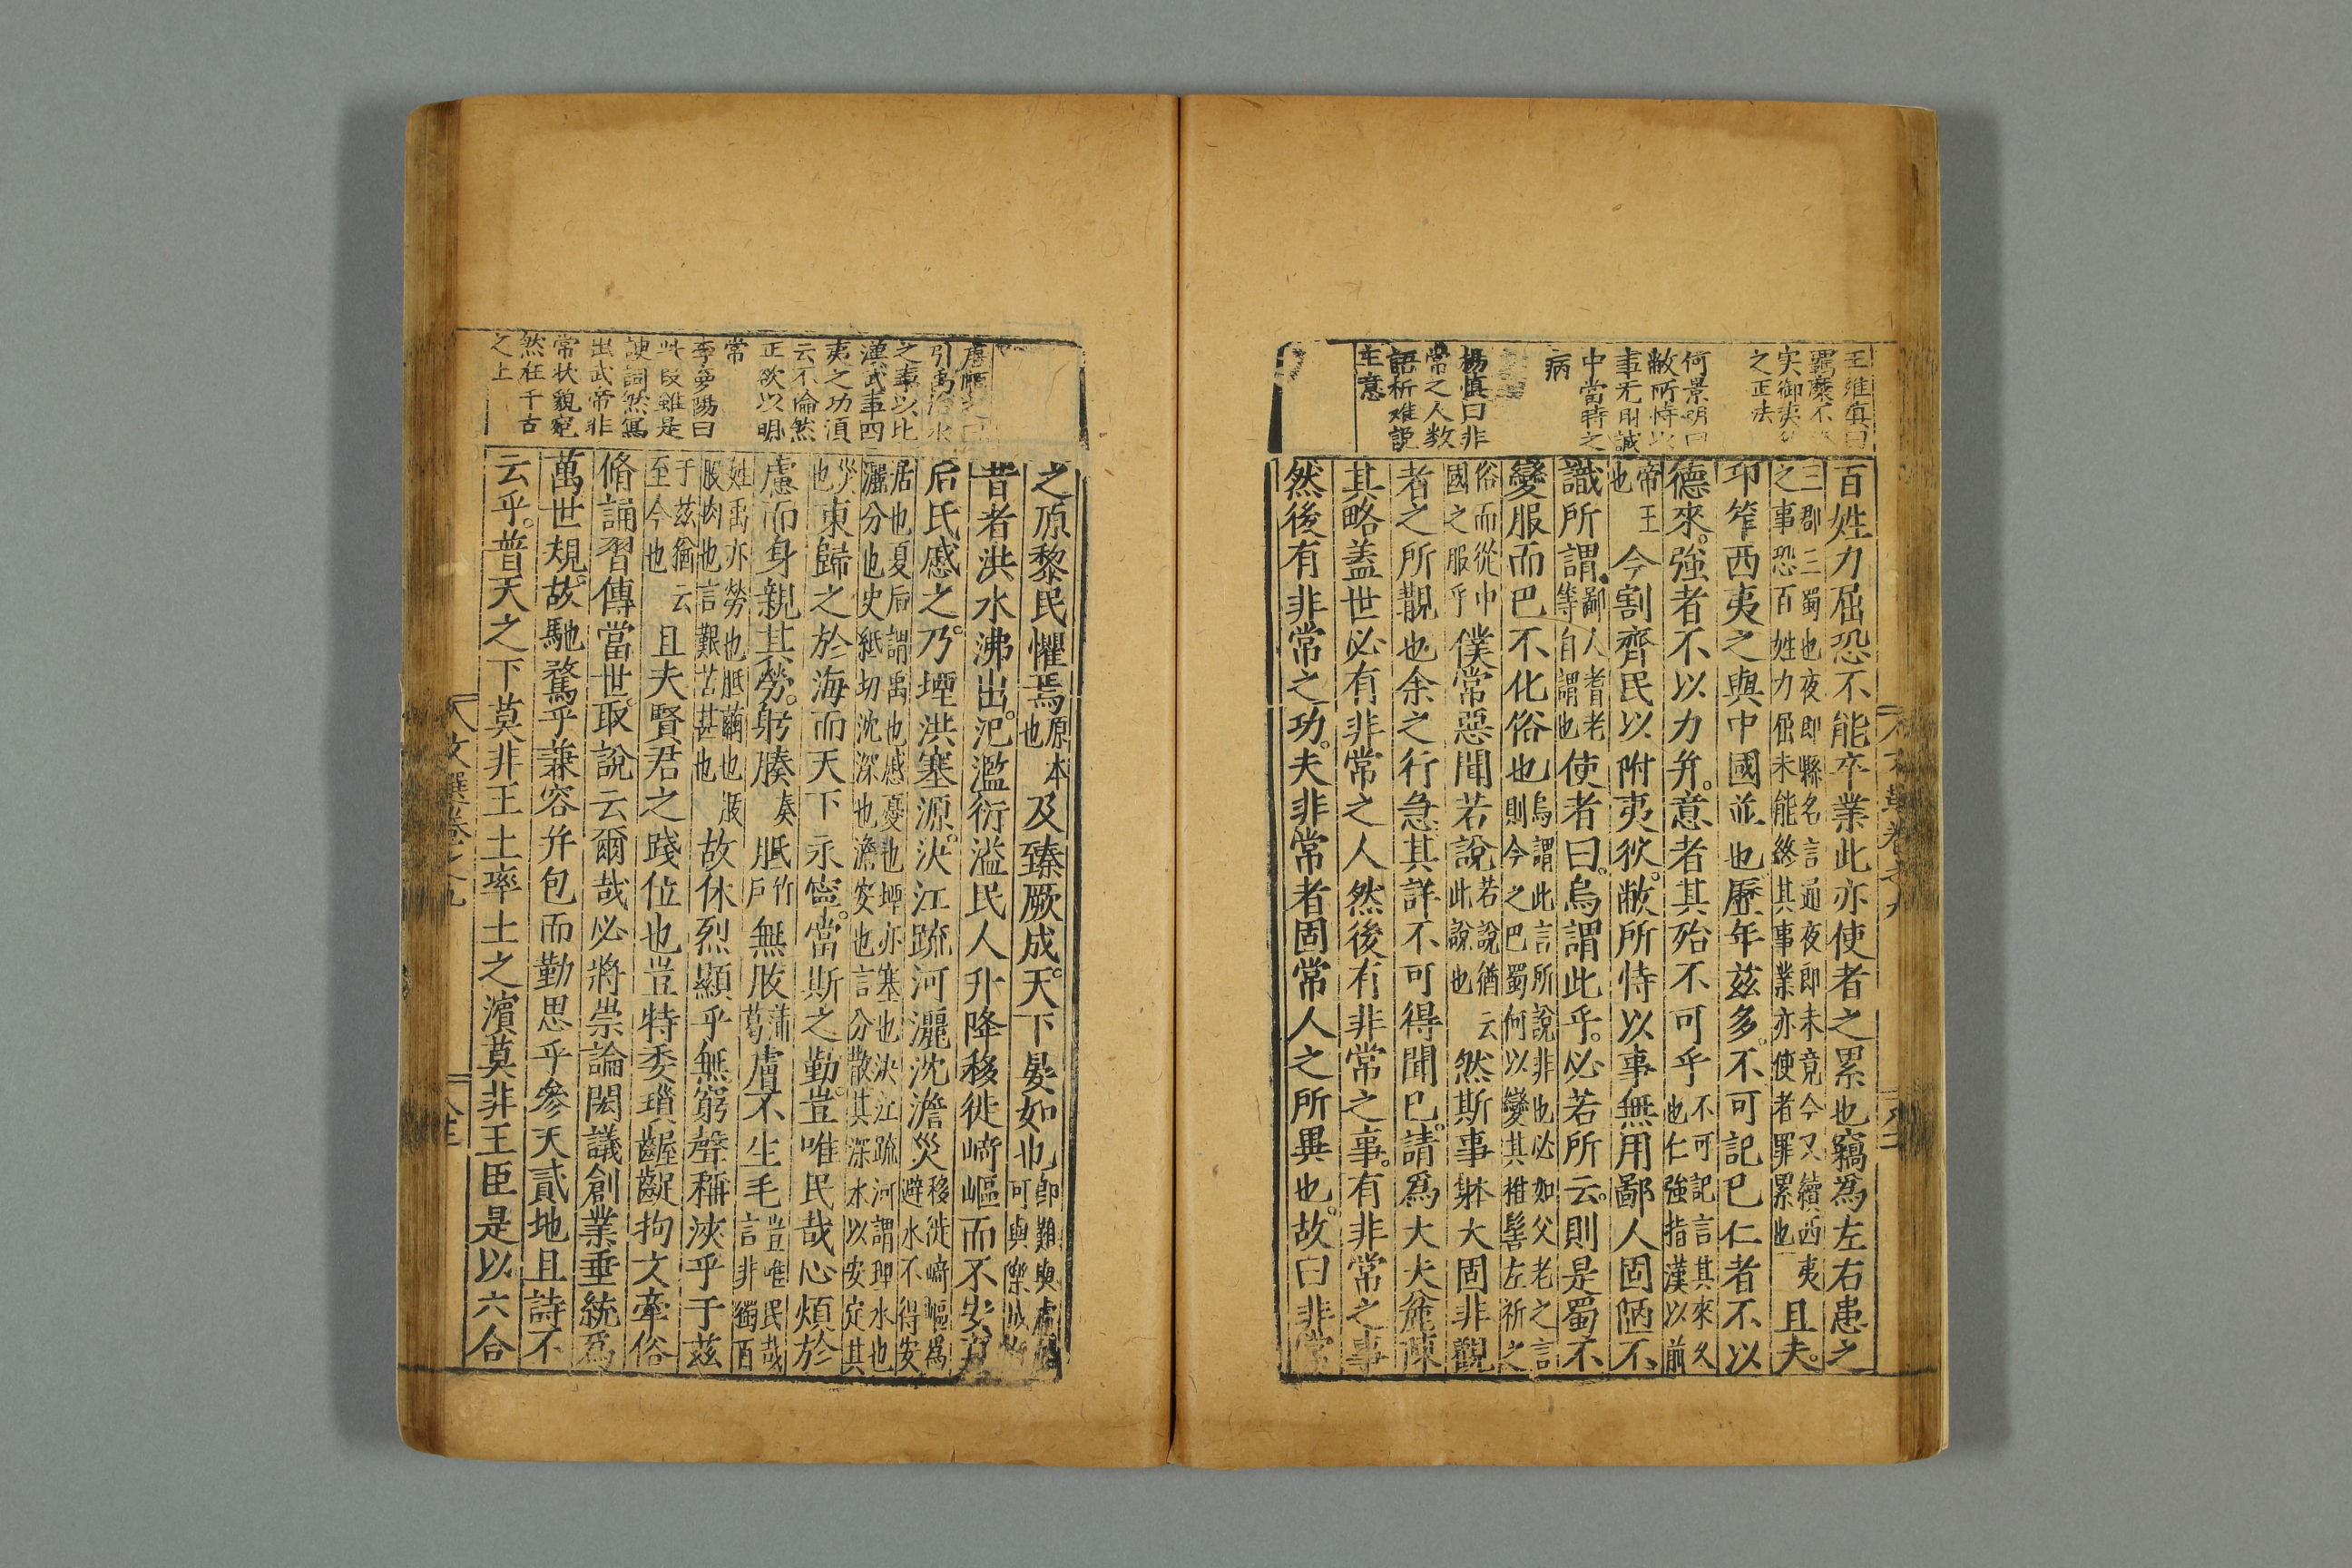 王維真曰
羈縻不
实御夷
之正法
何景明曰
敝所恃以
事无用誠
中當時之
病
楊慎曰非
常之人数
語析难説
主意
百姓力屈恐不能卒業此亦使者之累也竊為左右患之
三郡三蜀也夜即縣名言通夜即未竟今又續西夷
之事恐百姓力屈未能終其事業亦使者罪累也
且夫
卭筰西夷之與中國並也歷年兹多不可記已仁者不以
德來強者不以力并意者其殆不可乎
不可記言其來久
也仁強指漢以前
帝王
也
今割齊民以附夷狄敝所恃以事無用鄙人固陋不
識所謂
鄙人耆老
等自謂也
使者曰烏謂此乎必若所云則是蜀不
變服而巴不化俗也
烏謂此言所說非也必如父老之言
則今之巴蜀何以變其椎髻左衽之
俗而從中
國之服乎
僕常惡聞若說
若說猶云
此說也
然斯事躰大固非觀
者之所覯也余之行急其詳不可得聞已請爲大夫粗陳
其略蓋世必有非常之人然後有非常之事有非常之事
然後有非常之功夫非常者固常人之所異也故曰非常
引禹治水
之事以比
漢武事四
夷之功湏
云不倫然
正欲以明
常
李夢陽曰
此段雖是
諛詞然寫
出武帝非
常状貌宛
然在千古
之上
之原黎民懼焉
原本
也
及臻厥成天下晏如也
即難與慮始
可與樂成
昔者洪水沸出氾濫衍溢民人升降移徙崎嶇而不安夏
后氏慼之乃堙洪塞源決江疏河灑沈澹災
移徙崎嶇爲
避水不得安
居也夏后謂禹也慼憂也堙亦塞也決江疏河謂理水也
灑分也史紙切沈深也澹安也言分散其深水以安定其
災
也
東歸之於海而天下永寧當斯之勤豈唯民哉心煩於
慮而身親其勞躬腠
奏
胝
竹
戶
無胈
蒲
葛
膚不生毛
豈唯民哉
言非獨百
姓禹亦勞也胝繭也胈
股肉也言艱苦甚也
故休烈顯乎無窮聲稱浹乎于茲
于茲猶云
至今也
且夫賢君之踐位也豈特委瑣齷齪拘文牽俗
脩誦習傳當世取說云爾哉必將崇論閎議創業垂統爲
萬世規故馳騖乎兼容并包而勤思乎參天貳地且詩不
云乎普天之下莫非王土率土之濱莫非王臣是以六合
文選卷之九